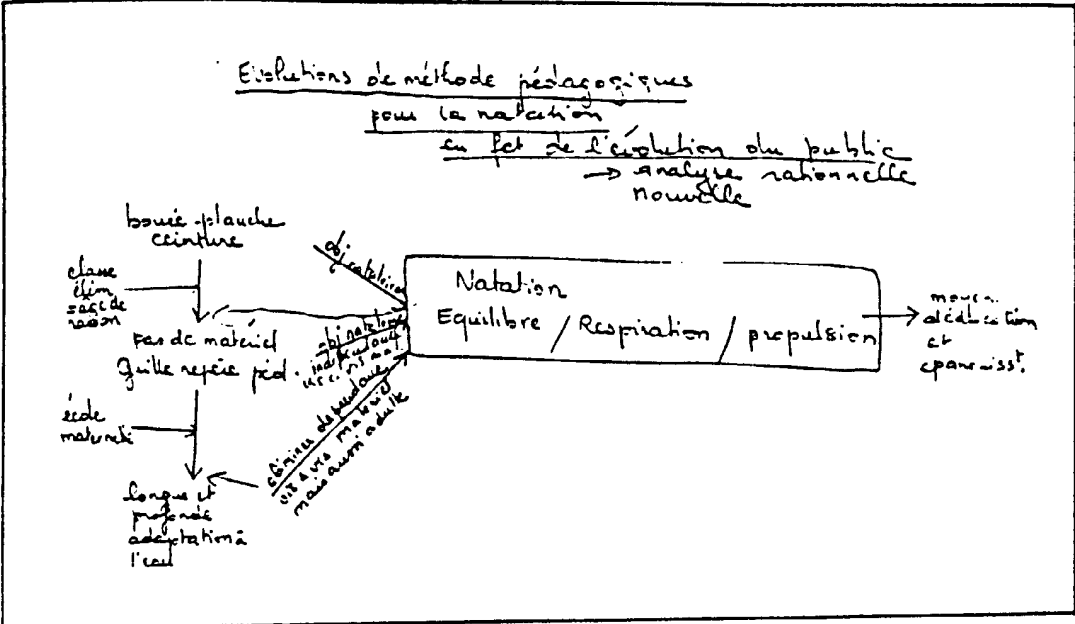 Evolutions de méthode pédagogiques
pour la natation
en fct de l'évolution du public
→ analyse rationnelle
nouvelle
bouée-planche
ceinture
classe
élém
âge de
raison
pas de matériel
Quille repère péd.
école
maternelle
longue et
profonde
adaptation à
l'eau
obj natatoires
obj natatoires
indépendance
vis à vis mat.
éliminer dépendance
vis à vis matériel
mais aussi adulte
Natation
Equilibre / Respiration / propulsion
moyen
d'éducation
et
épanouisst.